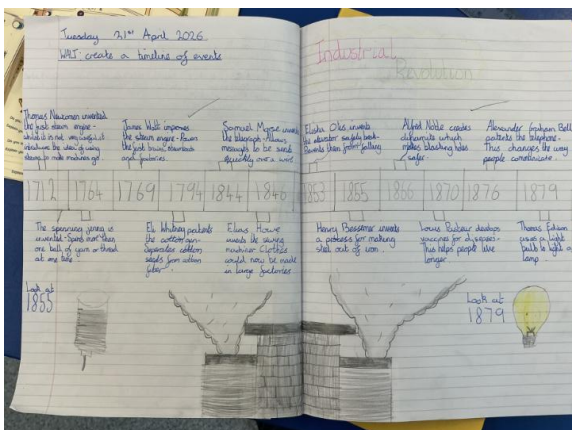 Tuesday 21st April 2026
WALT: create a timeline of events
Industrial
Revolution
Thomas Newcomen invented
the first steam engine -
whilst it is not very useful it
introduces the idea of using
steam to make machines go.
James Watt improves
the steam engine - Power
the first trains, steamboats
and factories.
Samuel Morse invents
the telegraph - Allows
messages to be sent
quickly over a wire
Elisha Otis invents
the elevator safety break -
Prevents them from falling
Alfred Noble creates
dinamite which
makes blasting holes
safer.
Alexander Graham Bell
patents the telephone -
This changes the way
people communicate.
1712 1764 1769 1794 1844 1846 1853 1855 1866 1870 1876 1879
The spinning jenny is
invented - Spins more than
one ball of yarn or thread
at one time
Eli Whitney patents
the cotton gin -
Seperates cotton
seeds from cotton
fiber
Elias Howe
invents the sewing
machine - Clothes
could now be made
in large factories
Henry Bessemer invents
a process for making
steel out of iron.
Louis Pasteur develops
vaccines for diseases -
This helps people live
longer
Thomas Edison
uses a light
bulb to light a
lamp.
Look at
1855
Look at
1879